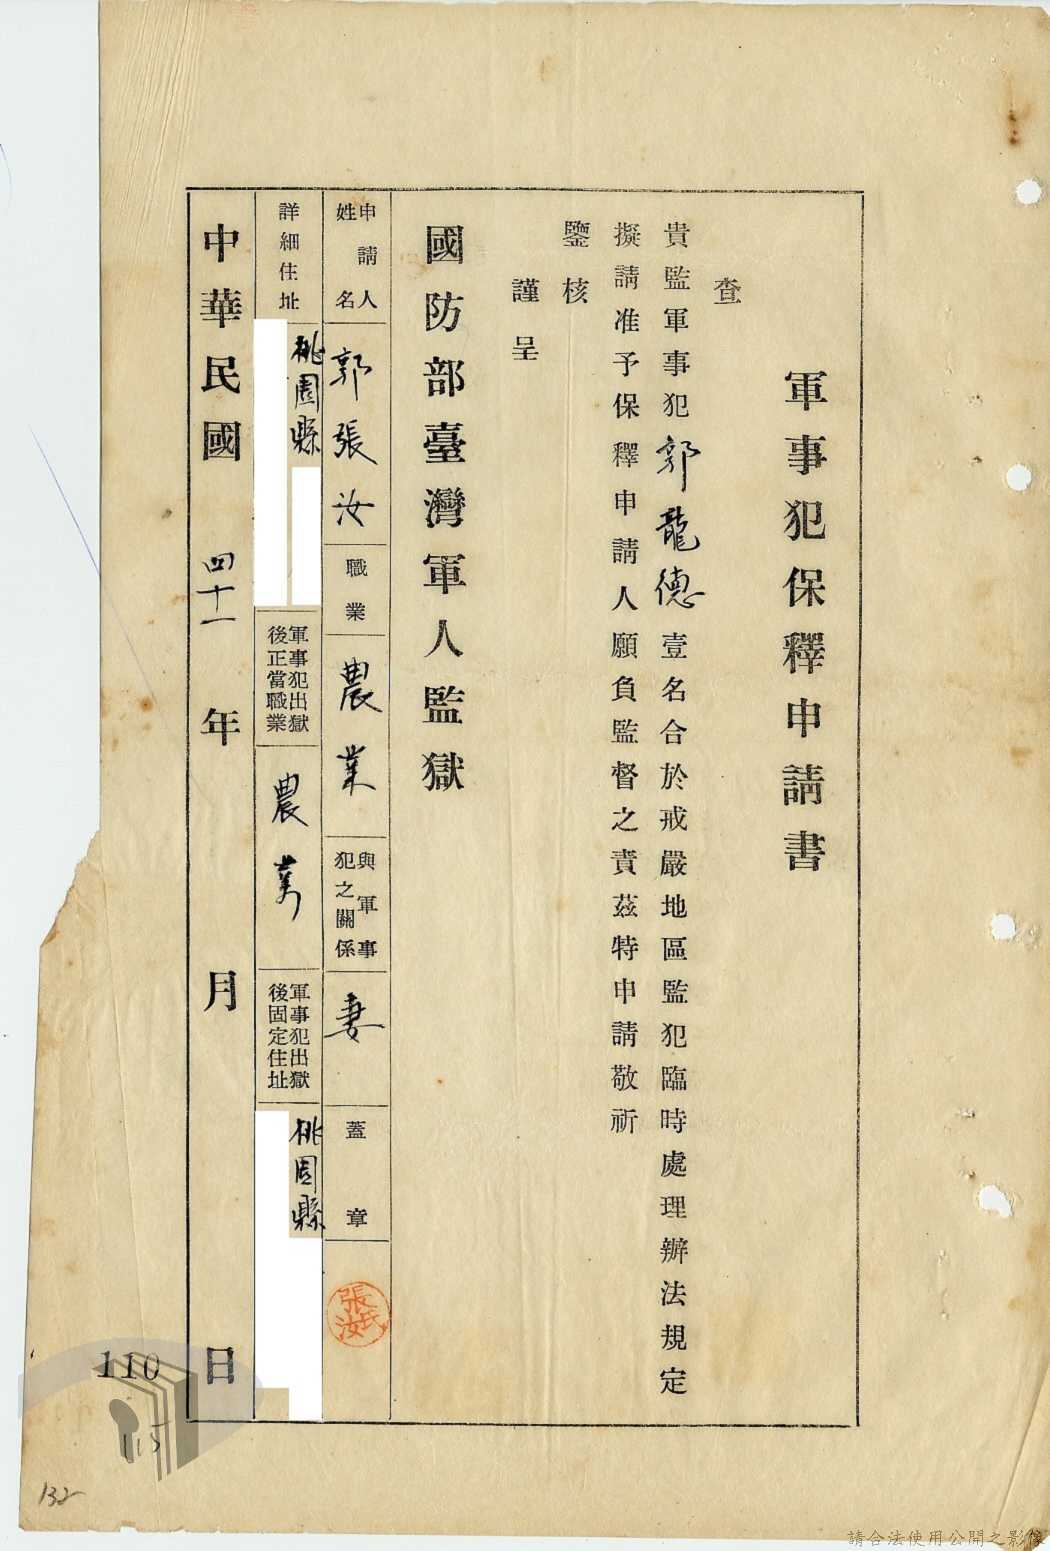 軍事犯保釋申請書
查
貴監軍事犯郭龍德壹名合於戒嚴地區監犯臨時處理辦法規定
擬請准予保釋申請人願負監督之責茲特申請敬祈
鑒核
謹呈
國防部臺灣軍人監獄
申請人
姓名
郭張汝
職業
農業
與軍事
犯之關係
妻
蓋章
張氏汝
詳細住址
桃園縣
軍事犯出獄
後正當職業
農業
軍事犯出獄
後固定住址
桃園縣
中華民國 四十一 年 月 日
110
115
132
請合法使用公開之影像